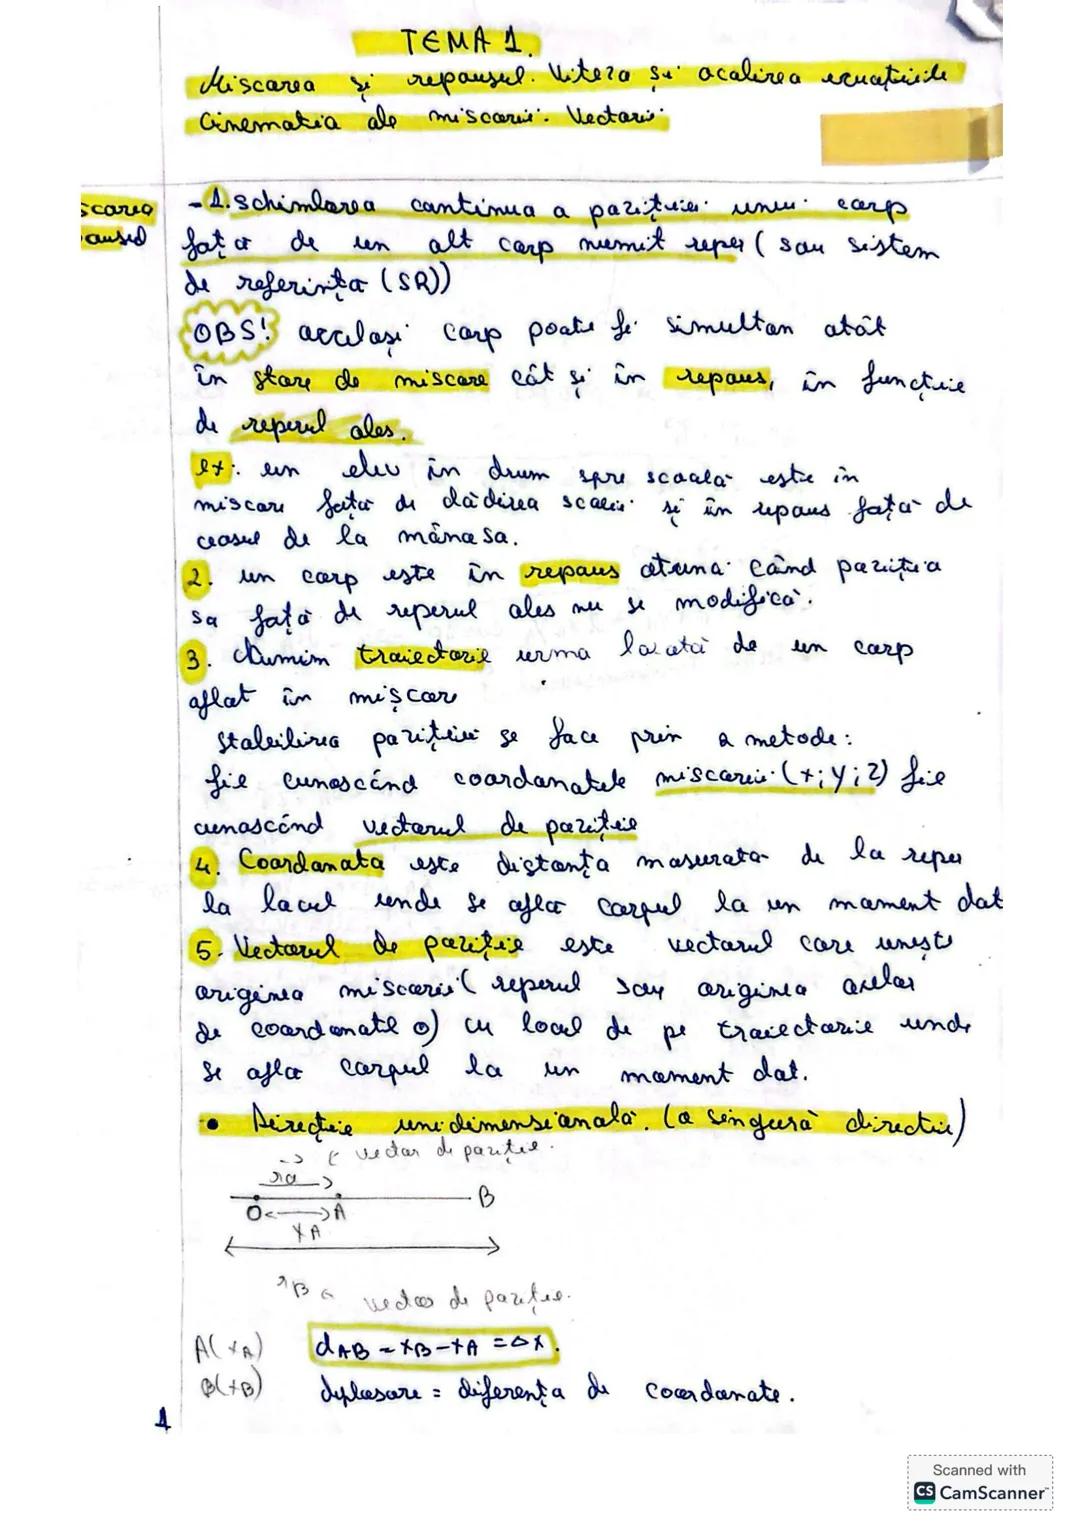 TEMA 1.
Miscarea și repausul. Viteza și acalirea ecuațiile
Cinematica ale miscarii. Vectori.
scarea
ausul
-1. schimbarea continua a poziției unui corp
față de un alt corp numit reper (sau sistem
de referința (SR))
OBS! același corp poate fi simultan atât
în stare de miscare cât și în repaus, în funcție
de reperul ales.
ex: un elev în drum spre scoală este în
miscare față de clădirea scolii și în repaus față de
ceasul de la mâna sa.
2. un corp este în repaus atunci când poziția
sa față de reperul ales nu se modifică.
3. Numim traiectorie urma lasată de un corp
aflat în mișcare
stabilirea poziției se face prin 2 metode:
fie cunoscând coordonatele miscarii (x;y;z) fie
cunoscând vectorul de poziție
4. Coordonata este distanța masurata de la reper
la locul unde se afla corpul la un moment dat
5. Vectorul de poziție este vectorul care unește
originea miscarii (reperul sau originea axelor
de coordonate O) cu locul de pe traiectorie unde
se afla corpul la un moment dat.
• Direcție unidimensională. (o singură directie)
vector de poziție.
B
O A
XA
rB vector de poziție.
A(xA) dAB = xB - xA = Δx.
B(xB) deplasare = diferența de coordonate.
1
Scanned with
CS CamScanner